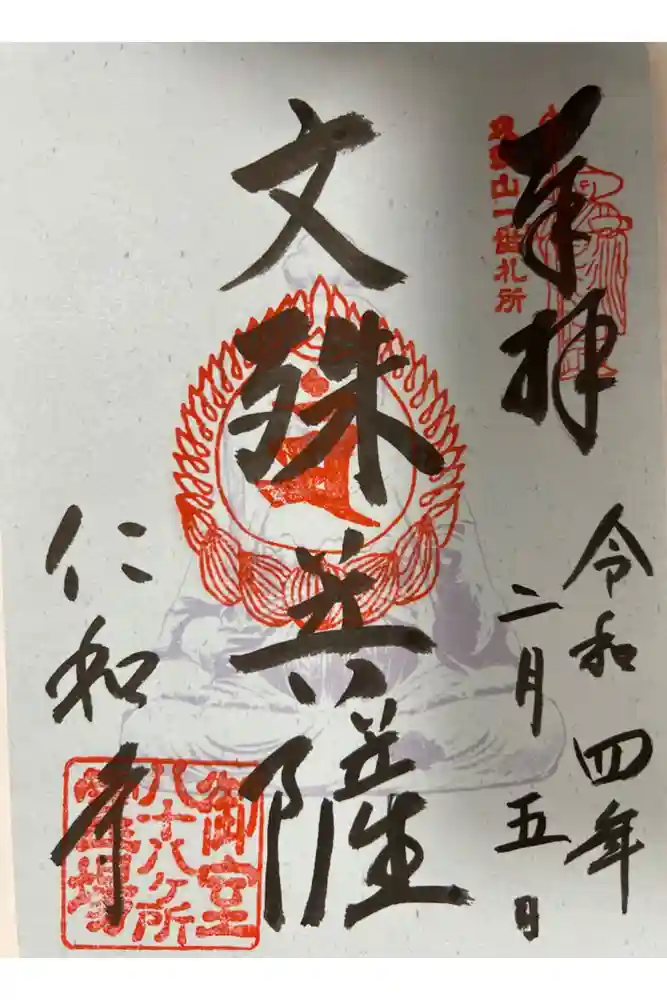 奉拝
成就山一番札所
令和四年
二月五日
文殊菩薩
仁和寺
御室
八十八ヶ所
霊場